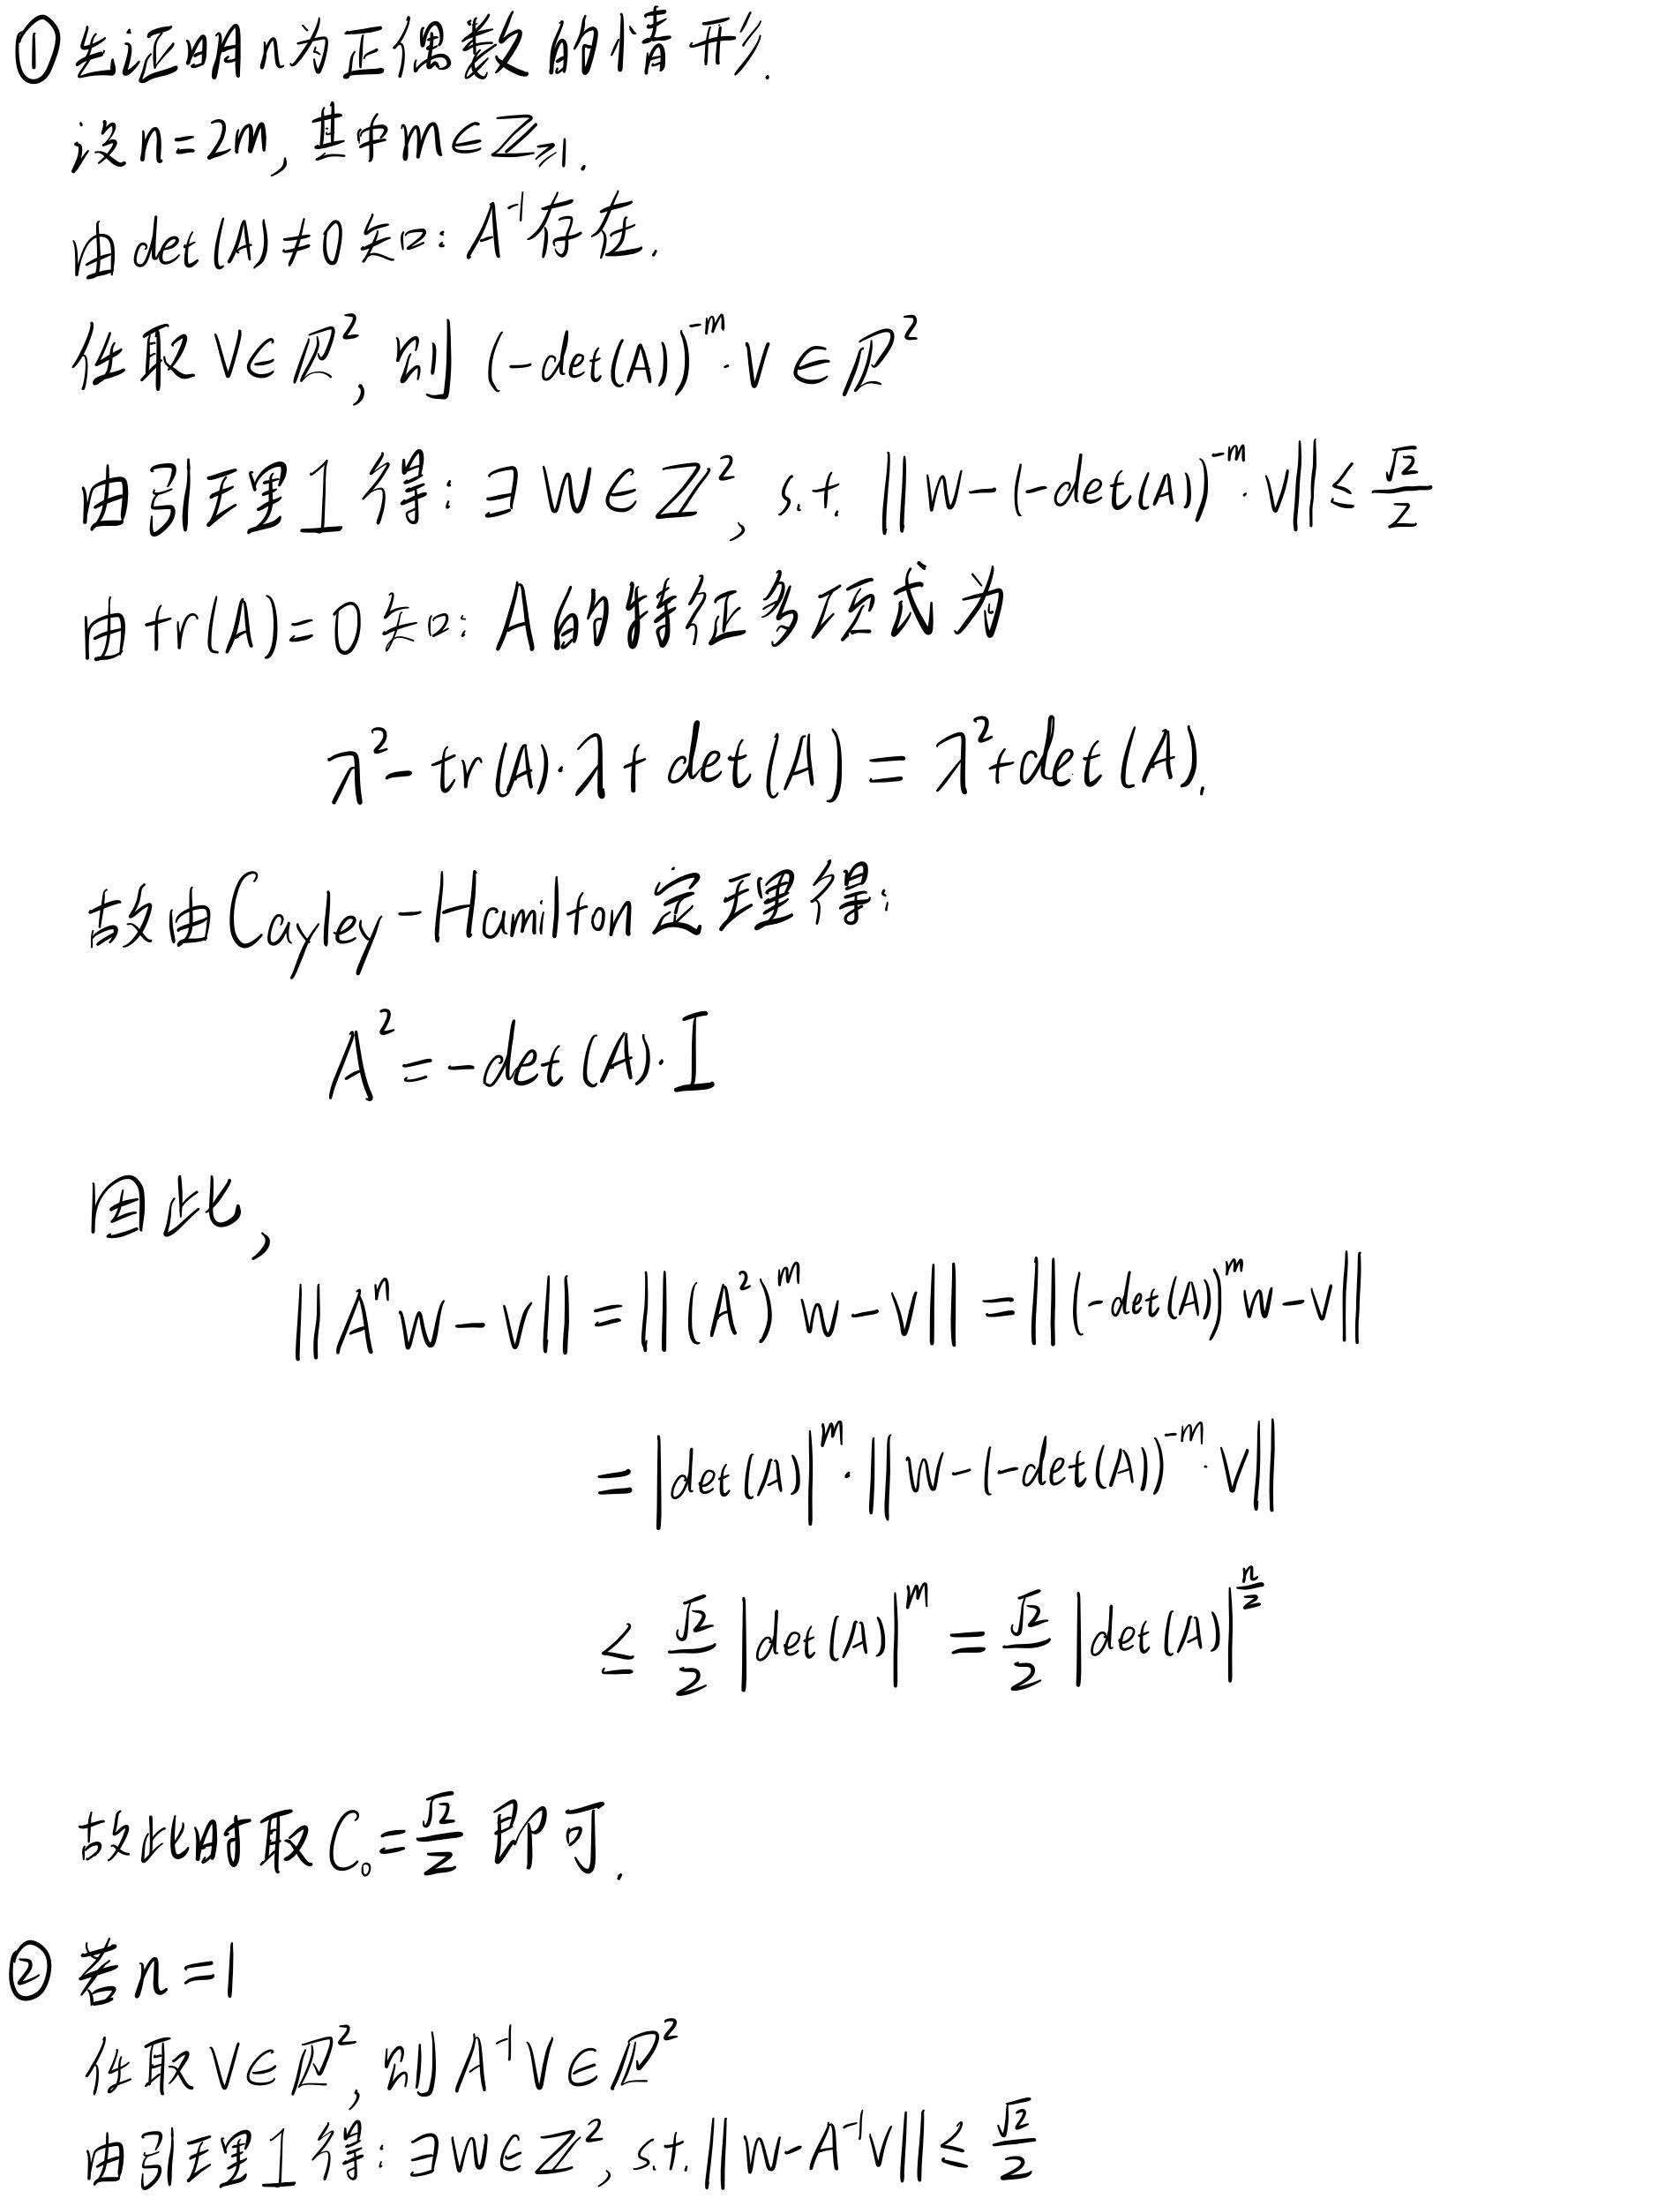 ①先证明n为正偶数的情形.
设n=2m, 其中m∈ℤ≥1.
由det(A)≠0知: A⁻¹存在.
任取V∈ℝ², 则 (-det(A))⁻ᵐ·V∈ℝ²
由引理1得: ∃W∈ℤ², s.t. ||W-(-det(A))⁻ᵐ·V||≤√2/2
由tr(A)=0知: A的特征多项式为
λ²-tr(A)·λ+det(A)=λ²+det(A).
故由Cayley-Hamilton定理得:
A²=-det(A)·I
因此,
||AⁿW-V||=||(A²)ᵐW-V||=||(-det(A))ᵐW-V||
=|det(A)|ᵐ·||W-(-det(A))⁻ᵐ·V||
≤ √2/2 |det(A)|ᵐ = √2/2 |det(A)|^(n/2)
故此时取C₀=√2/2 即可.
② 若n=1
任取V∈ℝ², 则A⁻¹V∈ℝ²
由引理1得: ∃W∈ℤ², s.t. ||W-A⁻¹V||≤√2/2